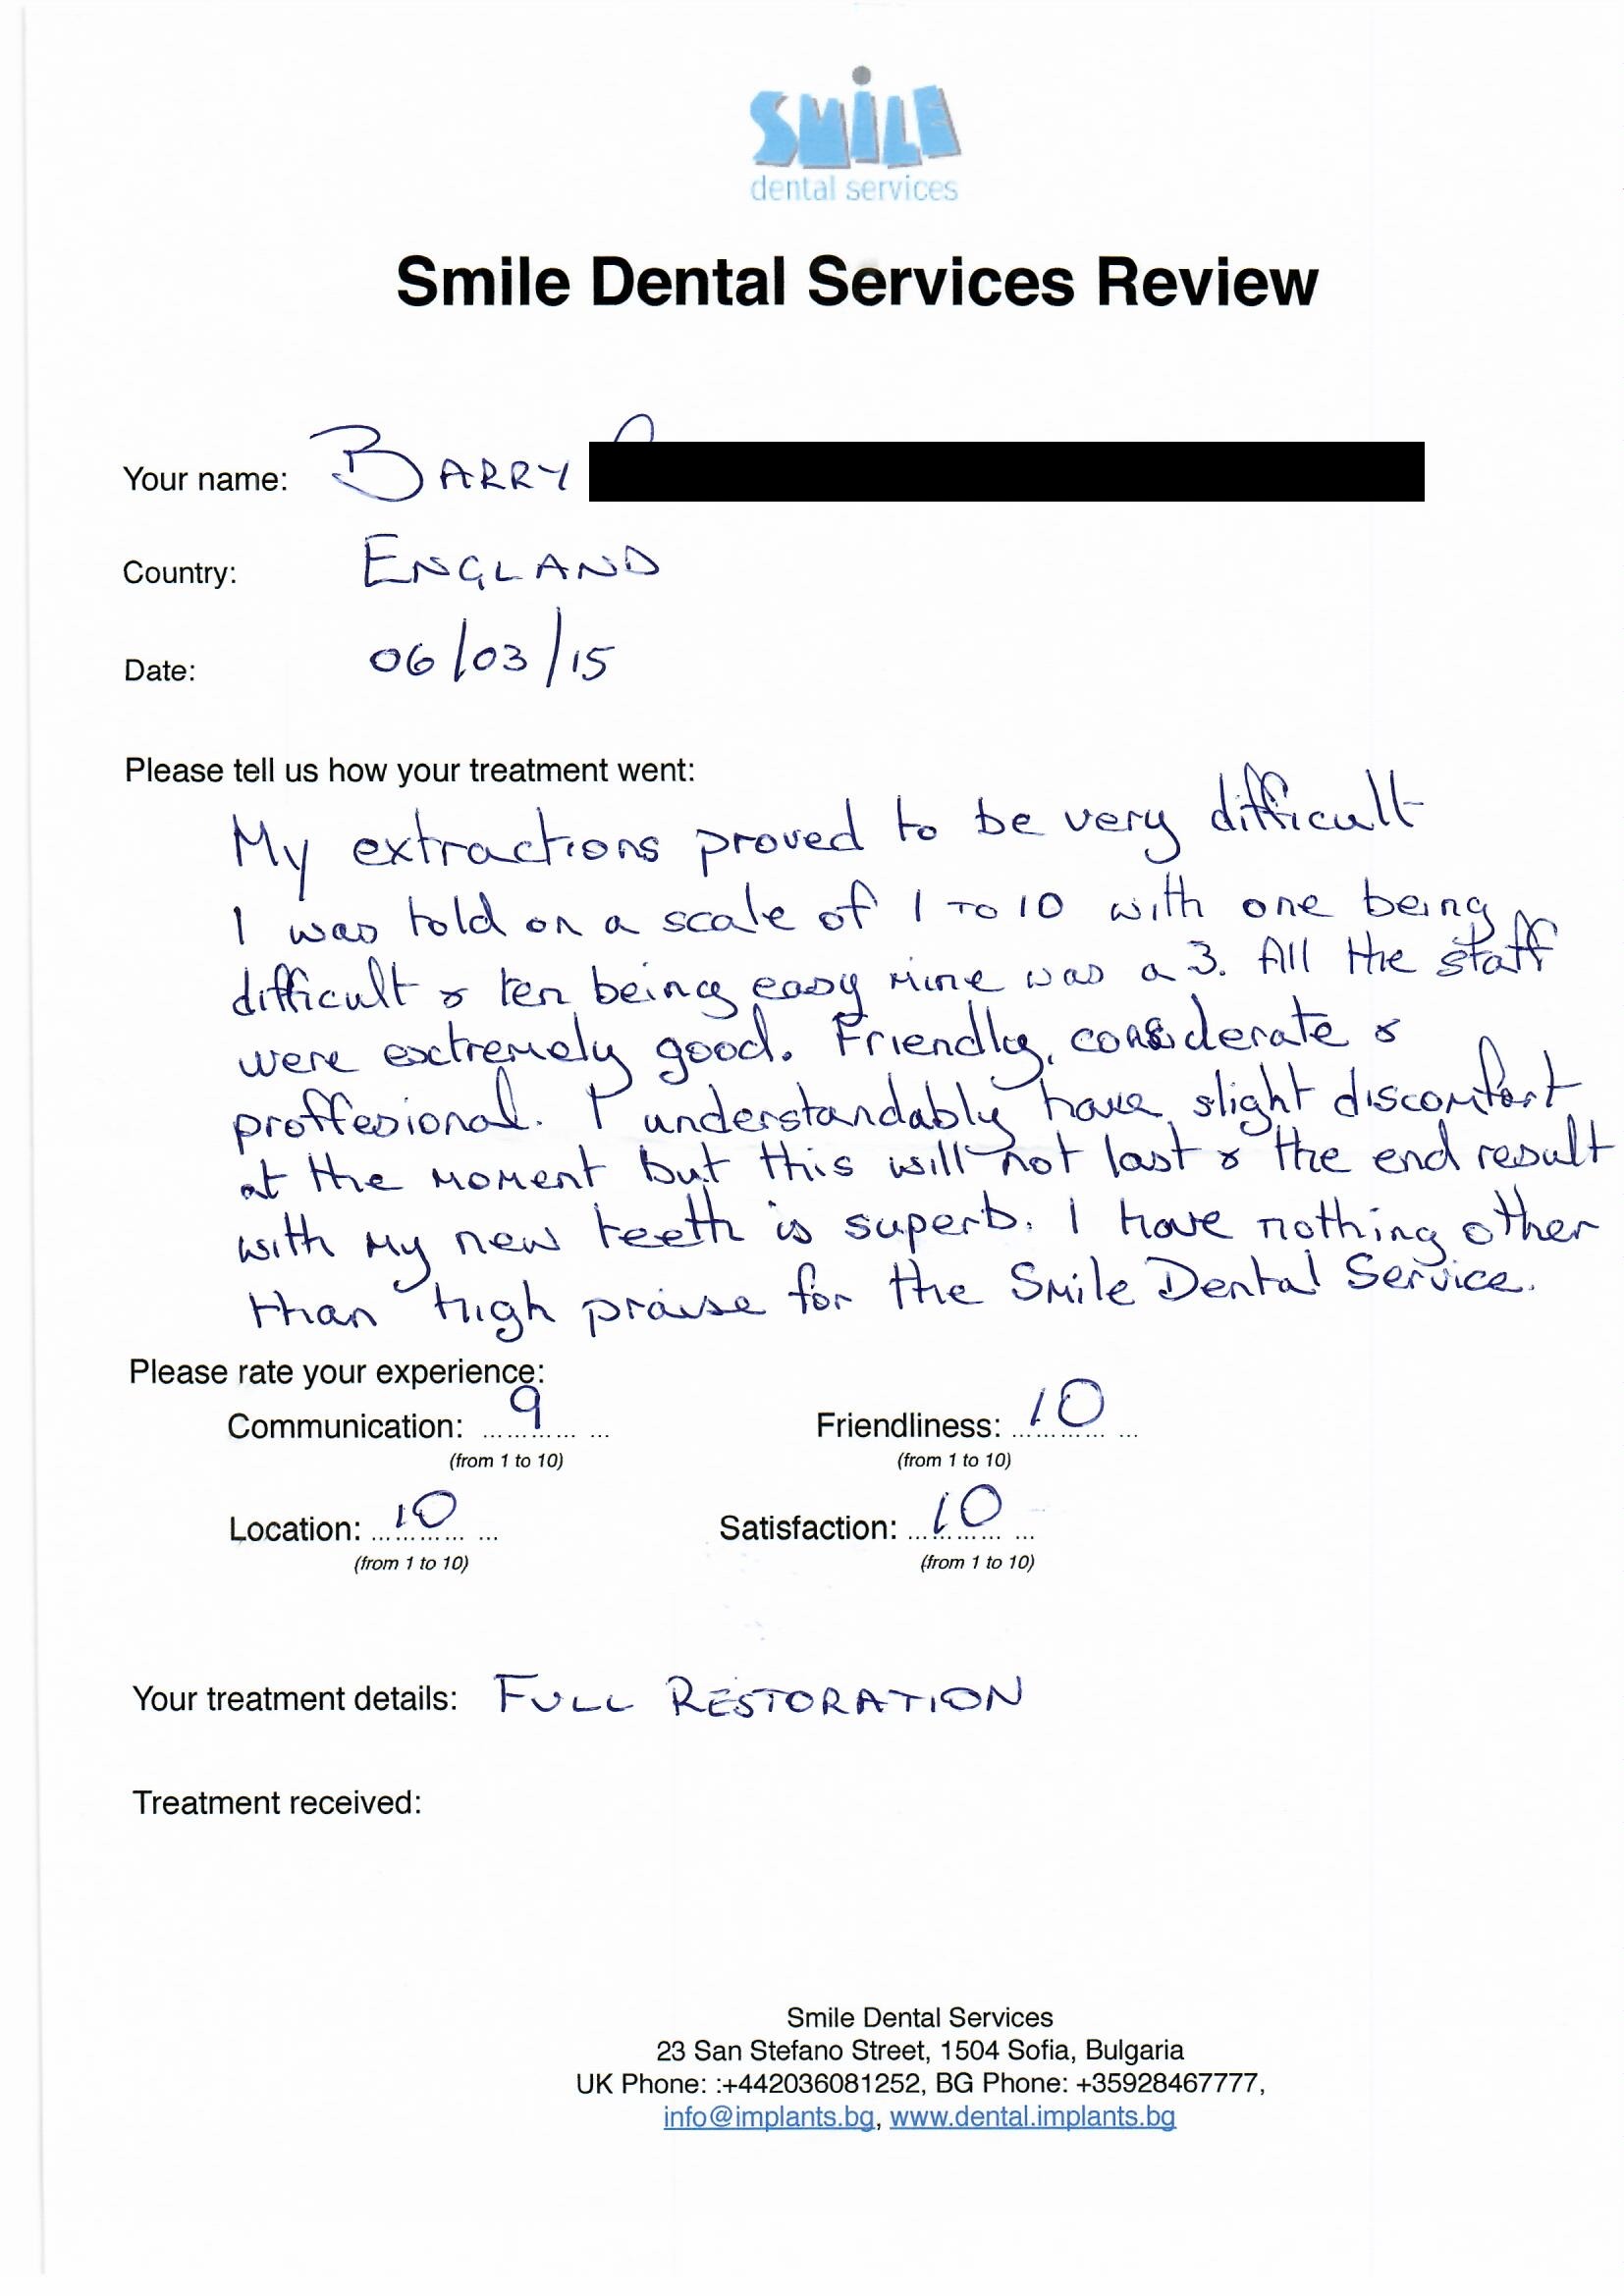 SMiLE
dental services
Smile Dental Services Review
Your name: BARRY
Country: ENGLAND
Date: 06/03/15
Please tell us how your treatment went:
My extractions proved to be very difficult
I was told on a scale of 1 TO 10 with one being
difficult & ten being easy mine was a 3. All the staff
were exctremely good. Friendly, considerate &
proffesional. I understandably have slight discomfort
at the moment but this will not last & the end result
with my new teeth is superb. I have nothing other
than high praise for the Smile Dental Service.
Please rate your experience:
Communication: 9 Friendliness: 10
(from 1 to 10) (from 1 to 10)
Location: 10 Satisfaction: 10
(from 1 to 10) (from 1 to 10)
Your treatment details: FULL RESTORATION
Treatment received:
Smile Dental Services
23 San Stefano Street, 1504 Sofia, Bulgaria
UK Phone: :+442036081252, BG Phone: +35928467777,
info@implants.bg, www.dental.implants.bg